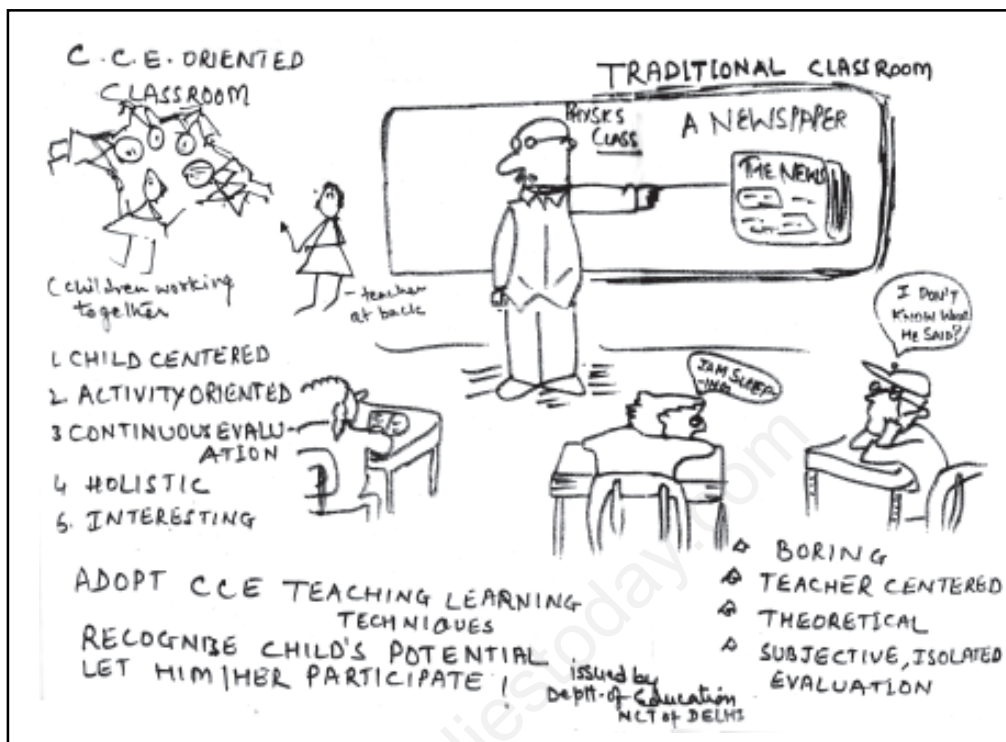 C.C.E. ORIENTED
CLASSROOM
(children working
together
- teacher
at back
1. CHILD CENTERED
2. ACTIVITY ORIENTED
3 CONTINUOUS EVALU-
ATION
4 HOLISTIC
5. INTERESTING
TRADITIONAL CLASSROOM
PHYSICS
CLASS
A NEWSPAPER
THE NEWS
I AM SLEEP
-ING
I DON'T
KNOW WHAT
HE SAID?
BORING
TEACHER CENTERED
THEORETICAL
SUBJECTIVE, ISOLATED
EVALUATION
ADOPT CCE TEACHING LEARNING
TECHNIQUES
RECOGNISE CHILD'S POTENTIAL
LET HIM/HER PARTICIPATE!
issued by
Deptt. of Education
NCT of DELHI
diestoday.com